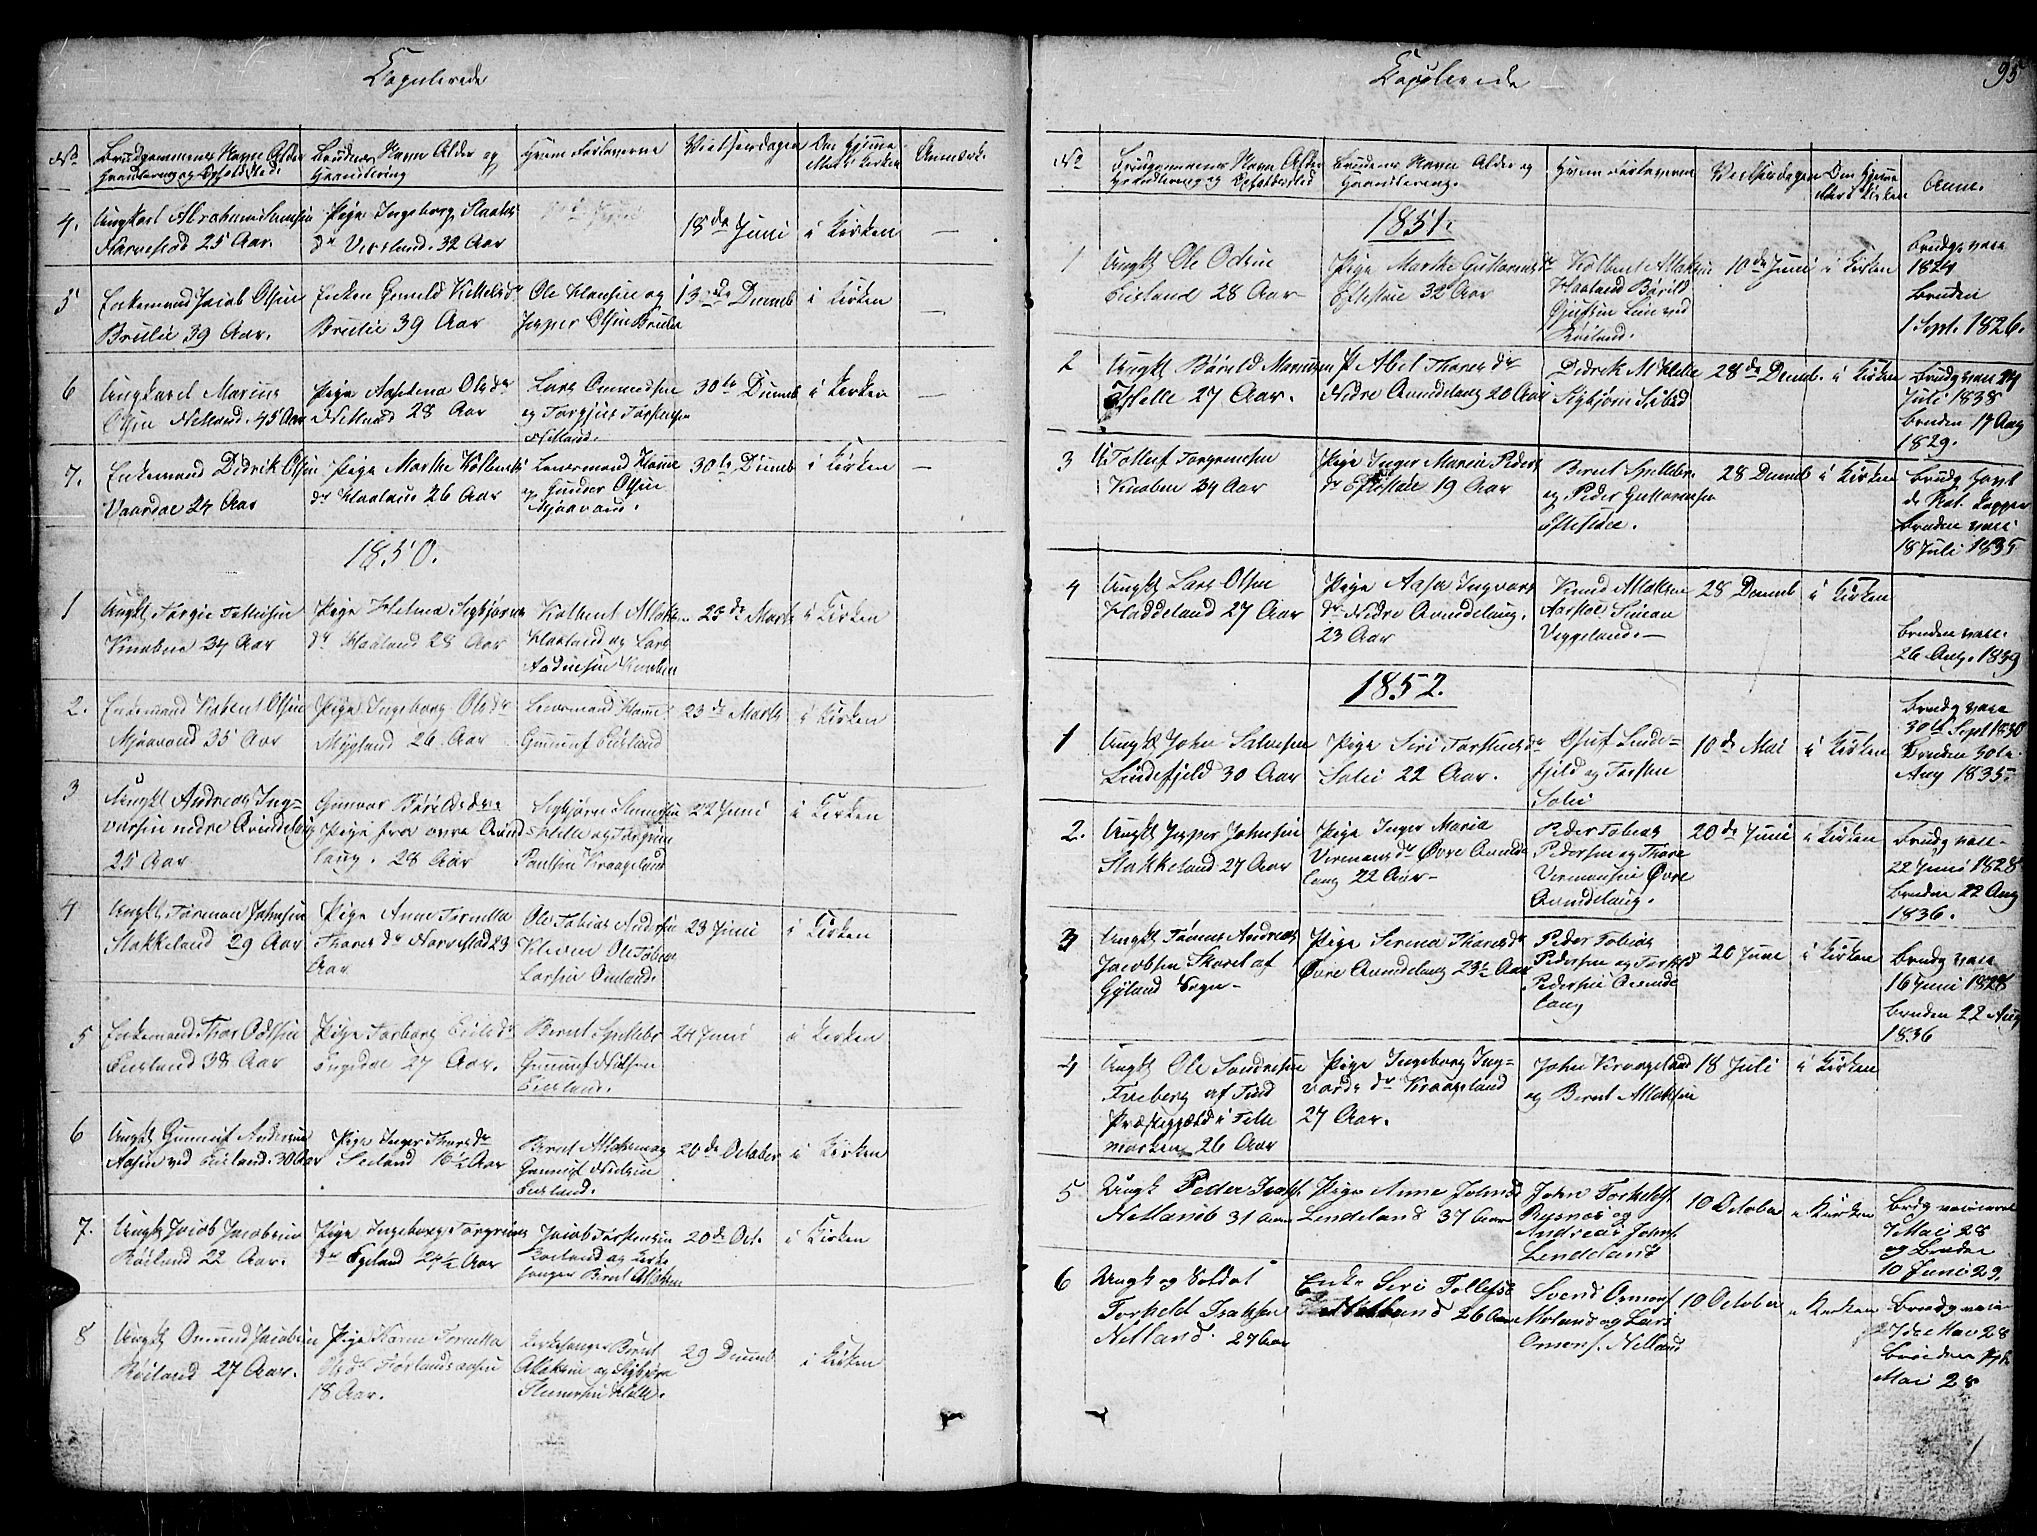 Copulerede
No
Brudgommenes Navn Alder
Haandtering og Opholdsted.
Brudenes Navn Alder og
Haandtering
Hvem Forloverne
Vielsesdagen
Om hjemme
eller i Kirken
Anmærk.
4.
Ungkarl Abraham Samsen
Narvestad 25 Aar.
Pige Ingeborg
dr Versland. 32 Aar
18de Juni
i Kirken
—
5
Enkemand Jacob Olsen
Brulie 39 Aar.
Enken Gunild Kittelsdr
Brulie 39 Aar
Ole Hansen og
Jesper Olsen Brulie
13de Decemb
i Kirken
—
6
Ungkarl Marius
Olsen Netland 45 Aar
Pige Aaselena Olsdr
Netland 28 Aar
Lars Omundsen
og Torgjus Torkelsen
Netland.
30te Decemb
i Kirken
—
7.
Enkemand Didrik Olsen
Vaardal 24 Aar
Pige Marthe Kolbents
dr Haaland 26 Aar
Lensmand Homme
og Gunder Olsen
Mjaavand.
30te Decemb
i Kirken
—
1850.
1
Ungk Torgie Tollefsen
Knaben 34 Aar
Pige Helena Sigbjørns
dr Haaland 28 Aar
Kolbent Atlaks
Haaland og Lars
Aadnesen Knaben
23de Marts
i Kirken
2.
Enkemand Kolbent Olsen
Mjaavand 35 Aar
Pige Ingeborg Olsdr
Mygland 26 Aar
Lensmand Homme
Gunnuf Eieland
23de Marts
i Kirken
3
Ungk Andreas Ing-
varsen nedre Avindelaug
25 Aar
Gunvor Bårildsdr
Pige fra øvre Avind
laug. 28 Aar
Sigbjørn Samuelsen
Helle og Torgrim
Paulsen Kraageland
22 Juni
i Kirken
4
Ungk Tormod Johnsen
Stakkeland 29 Aar
Pige Anne Tornetta
Thoresdr Narvestad 23
Aar
Ole Tobias Anders
Kleven Ole Tobias
Larsen Omland.
23 Juni
i Kirken
5
Enkemand Thor Odsen
Eieland 38 Aar
Pige Torborg Eielsdr
Engedal 27 Aar.
Bernt Spilleber
Gunnuf Nilsen
Eieland.
24 Juni
i Kirken
6
Ungk Gunnuf Andersen
Aasen ved Eieland. 30 Aar
Pige Inger Thoresdr
Seeland 16½ Aar
Bernt Atlaksen og
Gunnuf Nielsen
Eieland.
20de October
i Kirken
7.
Ungk Jacob Jacobsen
Røiland 22 Aar.
Pige Ingeborg Torgrims
dr Egeland 24½ Aar
Jacob Torstensen
Røiland og Kirke
sanger Bernt Atlaksen
20de Oct.
i Kirken
8
Ungk Omund Jacobsen
Røiland 27 Aar.
Pige Karen Tornetta
Olsdr Førlandsaasen
18 Aar.
Kirkesanger Bernt
Atlaksen og Sigbjørn
Samuelsen Helle.
29 Decemb
i Kirken
Copulerede
95
No
Brudgommenes Navn Alder
Haandtering og Opholdssted
Brudenes Navn Alder og
Haandtering.
Hvem Forloverne
Vielsesdagen
Om hjemme
eller i Kirken
Anm.
1851.
1
Ungk Ole Odsen
Eieland 28 Aar
Pige Marthe Guttormsdr
Eftestøl 32 Aar
Kolbent Atlaksen
Haaland Bårild
Gjufsen Lien ved
Røiland.
10de Juni
i Kirken
Brudg. vacc
1824
Bruden
1 Sept. 1826.
2
Ungk Bårild Monsen
Helle 27 Aar.
P Abel Thoresdr
Nedre Avindelaug 20 Aar
Didrik M Helle
Sigbjørn Sælid
28de Decemb.
i Kirken
Brudg vacc 24
Juli 1838
Bruden 17 Aug
1829.
3
U. Tollef Torgrimsen
Knaben 34 Aar
Pige Inger Maria Peders
dr Eftestøl 19 Aar
Bernt Spilleber
og Peder Guttormsen
Eftestøl.
28 Decemb
i Kirken
Brudg havt
de Nat. Kopper
Bruden vacc
18 Juli 1835
4
Ungk Lars Olsen
Haddeland 27 Aar
Pige Aasa Ingvars
dr Nedre Avindelaug.
23 Aar
Knud Atlaksen
Aarstøl Simon
Veggeland. —
28 Decemb
i Kirken
Bruden vacc.
26 Aug. 1839
1852.
1
Ungk John Salvesen
Lindefjeld 30 Aar
Pige Siri Torstensdr
Solie 22 Aar.
Osuf Linde-
fjeld og Torsten
Solie
10de Mai
i Kirken
Brudg vacc
30te Sept 1830
Bruden 30te
Aug 1835
2.
Ungk Jesper Johnsen
Stakkeland 27 Aar
Pige Inger Maria
Vermundsdr Øvre Avinde
laug 22 Aar -
Peder Tobias
Pedersen og Thore
Vermundsen Øvre
Avindelaug.
20de Juni
i Kirken
Brudg vacc
22 Juni 1828
Bruden 22 Aug
1836.
3
Ungk Tønnes Andreas
Jacobsen Skarel af
Gyland Sogn -
Pige Serena Thoresdr
Øvre Avindelaug 23½ Aar
Peder Tobias
Pedersen og Torkild
Pedersen Avinde
laug
20 Juni
i Kirken
Brudg vacc
16 Juni 1828
Bruden 22 Aug
1836
4
Ungk Ole Sondresen
Freberg af Tind
Præstegjeld i Telle
marken 26 Aar
Pige Ingeborg Ing-
vardsdr Kraageland
27 Aar.
John Kraageland
og Bernt Atlaksen
18 Juli
i Kirken
5.
Ungk Peder Isaks.
Netland 31 Aar
Pige Anne Johnsd
Lendeland 37 Aar
John Torkelsf.
Rysnes og
Andreas Johns.
Lendeland
10 October
i Kirken
Brdg vaccineret
7 Mai 28
og Bruden
10 Juni 29.
6
Ungk og Soldat
Torkeld Isaksen
Netland. 27 Aar
Enke Siri Tollefsd
Netland 26 Aar
Svend Omons.
Moland og Lars
Omons. Netland
10 October
i Kirken
Brudg vacc
7de Mai 28
Bruden
Mai 28